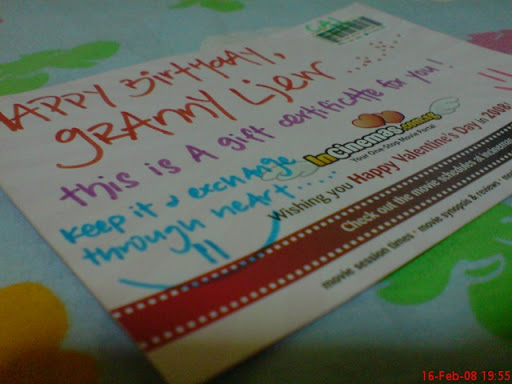 CAL
HAPPY BirthDAY,
grANNY Liew ......
this is A gift certificate for you!
keep it & exchange
through heart.....
InCinemas.com.sg
Your One-Stop Movie Portal
Wishing you Happy Valentine's Day in 2008!
Check out the movie schedules at
movie session times · movie synopsis & reviews
16-Feb-08 19:55